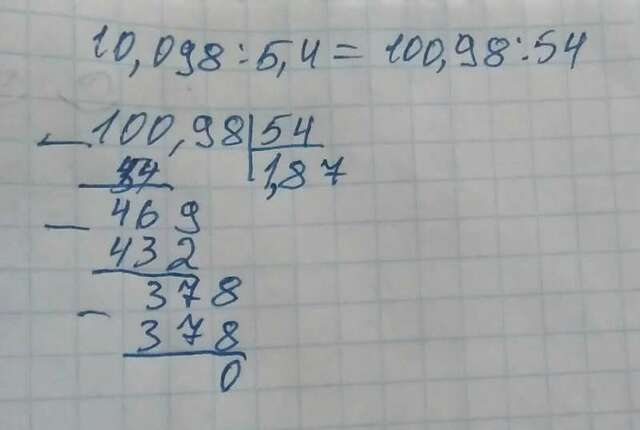 10,098:5,4= 100,98:54
100,98|54
54 1,87
469
432
378
378
0